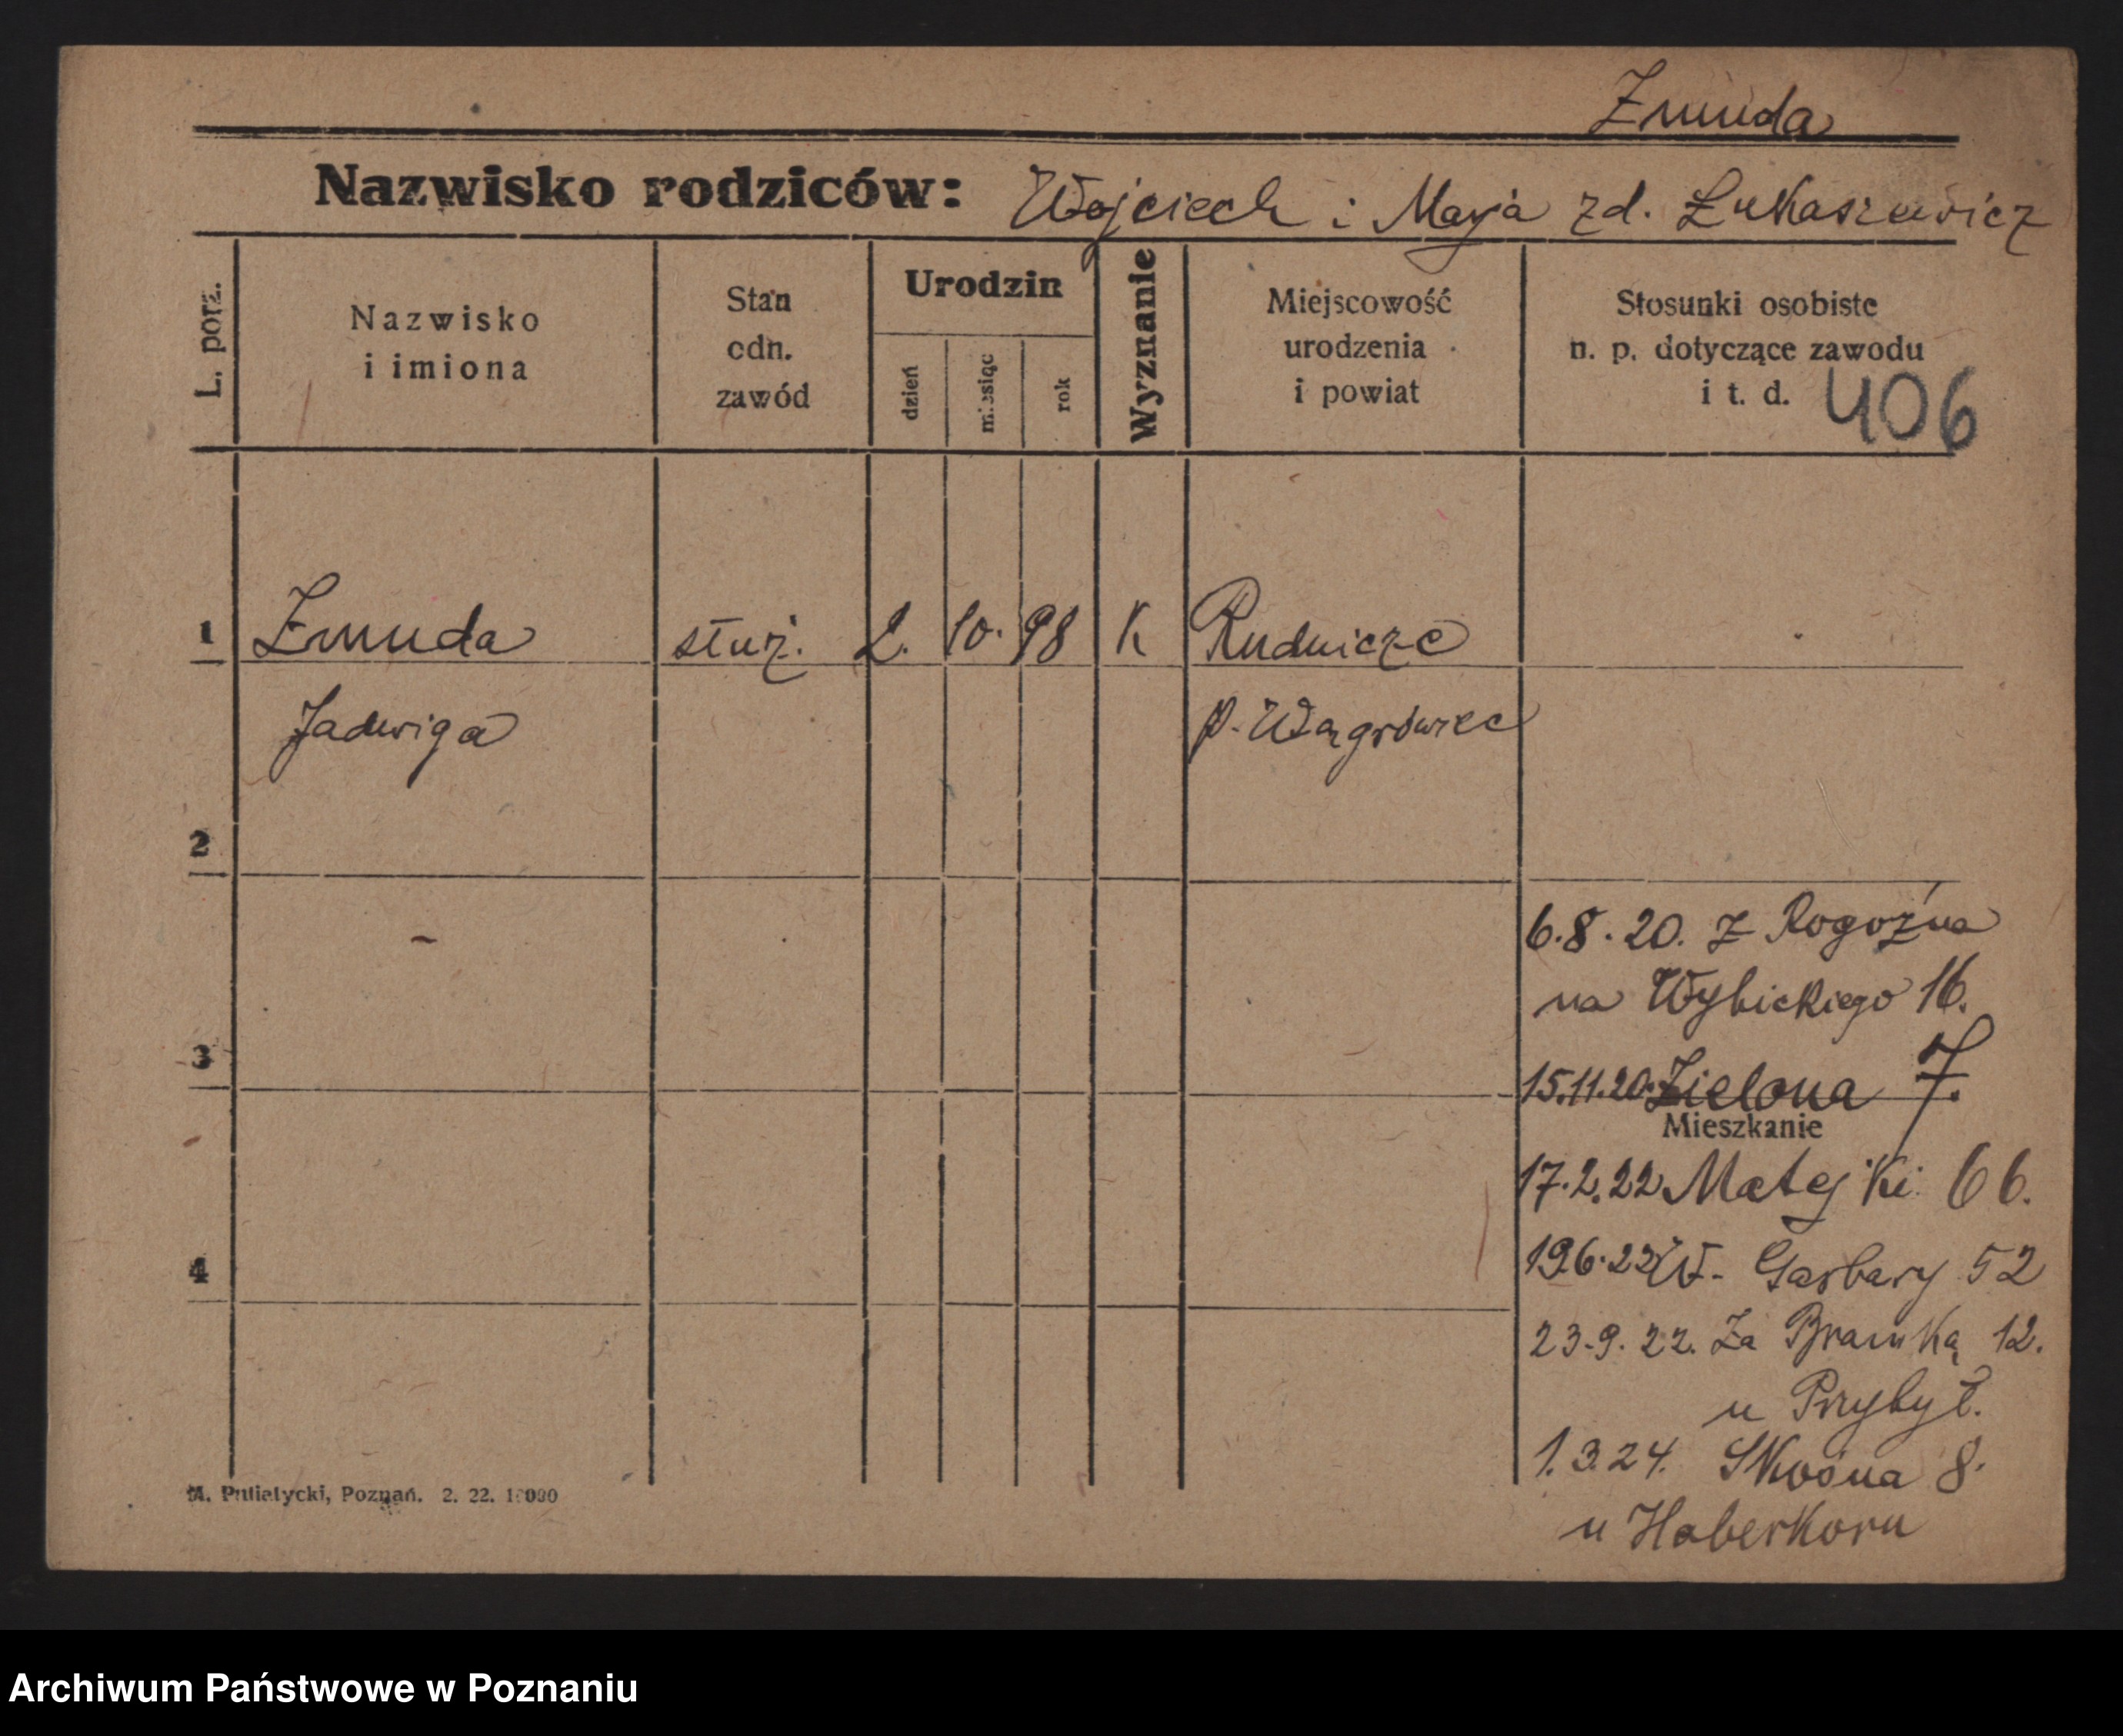 Zmuda
Nazwisko rodziców: Wojciech i Marja zd. Łukaszewicz
L. porz.
Nazwisko
i imiona
Stan
odn.
zawód
Urodzin
dzień
miesiąc
rok
Wyznanie
Miejscowość
urodzenia
i powiat
Stosunki osobiste
n. p. dotyczące zawodu
i t. d. 406
1 Zmuda służ. 2. 10. 98 K Rudnicze
Jadwiga p. Wągrówiec
2
6.8.20. z Rogoźna
na Wybickiego 16.
3
15.11.20. Zielona 7.
Mieszkanie
17.2.22 Matejki 66.
4
19.6.22 W. Garbary 52
23.9.22. Za Bramką 12.
u Przybył.
1.3.24. Skośna 8.
u Haberkorn
M. Putiatycki, Poznań. 2. 22. 10000
Archiwum Państwowe w Poznaniu